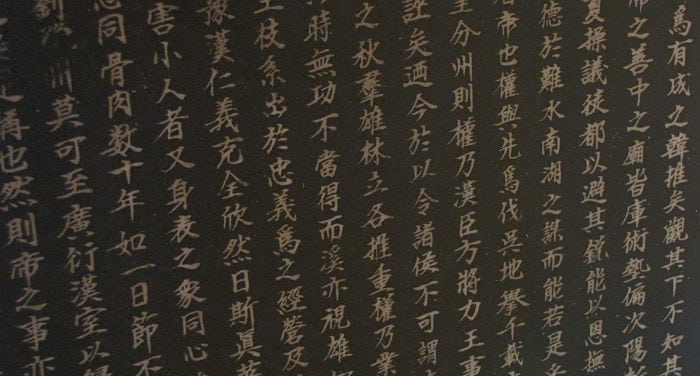 爲有成之韓推矣觀其下不知其
帝之善中之廟皆庫術藝偏次陽
夏操議徒都以避其鋭能以恩撫
德於難水南湖之謀而能若是乎
者帝也權與先爲伐吳地擧千載
至分州則權乃漢臣方將力王事
誣矣迺今於以令諸侯不可謂
之秋羣雄林立各推重權乃業
時無功不當得而溪亦視雄
王枝系出於忠義爲之經營及
豫漢仁義克全欣然曰斯眞英
害小人者又身表之衆同心
心同骨肉数十年如一日節不
劉 州莫可至廣衍漢室以歸
稱也然則帝之事亦